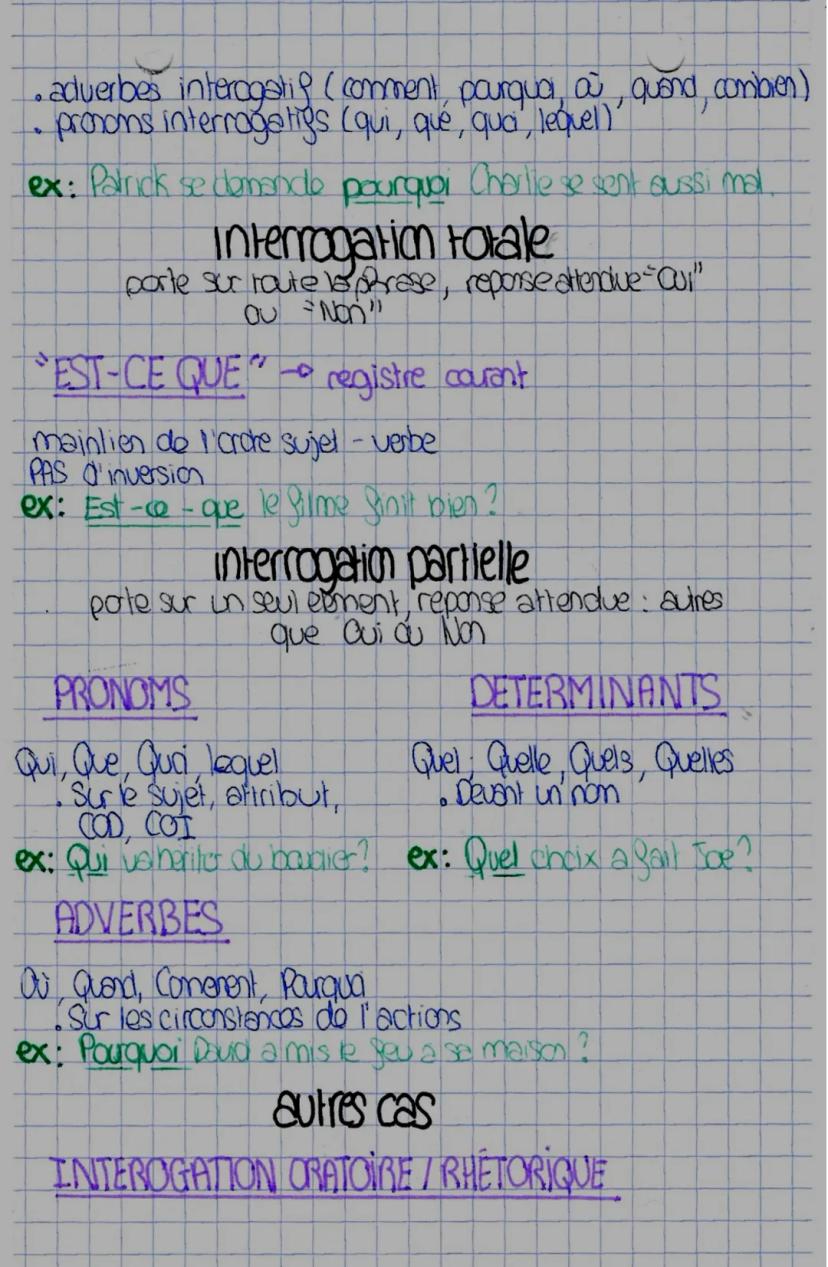 . adverbes interogatif (comment, pourquoi, où, quand, combien)
. pronoms interrogatifs (qui, que, quoi, lequel)
ex: Patrick se demande pourquoi Charlie se sent aussi mal.
interrogation totale
porte sur toute la phrase, reponse attendue "Oui"
ou "Non"
"EST-CE QUE" → registre courant
maintien de l'ordre sujet - verbe
PAS d'inversion
ex: Est-ce-que le filme finit bien ?
interrogation partielle
porte sur un seul element, reponse attendue : autres
que Oui ou Non
PRONOMS
Qui, Que, Quoi, lequel
. Sur le sujet, attribut,
COD, COI
ex: Qui va heriter du
DETERMINANTS
Quel, Quelle, Quels, Quelles
. Devant un nom
ex: Quel choix a fait Joe ?
ADVERBES
Où, Quand, Comement, Pourquoi
. Sur les circonstances de l'actions
ex: Pourquoi David a mis le feu a sa maison ?
autres cas
INTEROGATION ORATOIRE / RHÉTORIQUE